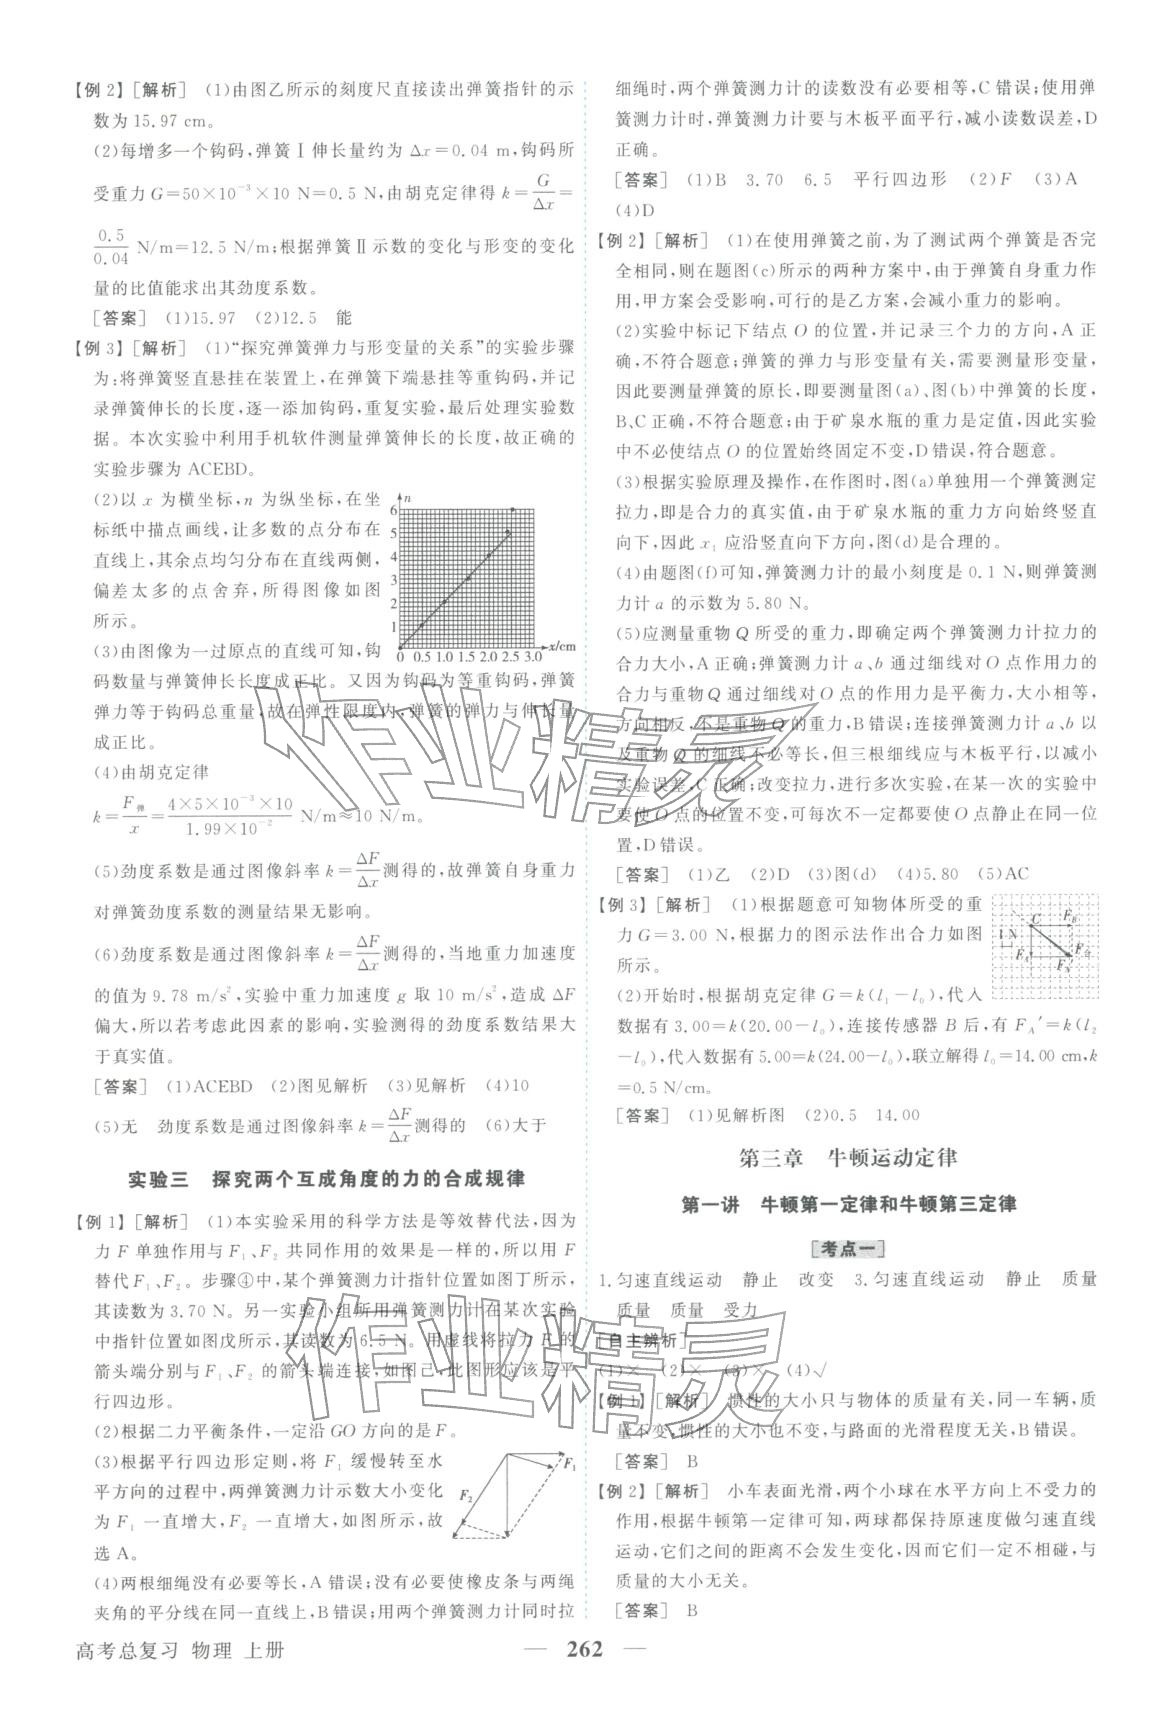 【例2】[解析] (1)由图乙所示的刻度尺直接读出弹簧指针的示
数为15.97 cm。
(2)每增多一个钩码,弹簧Ⅰ伸长量约为 Δx=0.04 m,钩码所
受重力 G=50×10⁻³×10 N=0.5 N,由胡克定律得 k=G/Δx=
0.5/0.04 N/m=12.5 N/m;根据弹簧Ⅱ示数的变化与形变的变化
量的比值能求出其劲度系数。
[答案] (1)15.97 (2)12.5 能
【例3】[解析] (1)“探究弹簧弹力与形变量的关系”的实验步骤
为:将弹簧竖直悬挂在装置上,在弹簧下端悬挂等重钩码,并记
录弹簧伸长的长度,逐一添加钩码,重复实验,最后处理实验数
据。本次实验中利用手机软件测量弹簧伸长的长度,故正确的
实验步骤为 ACEBD。
(2)以 x 为横坐标,n 为纵坐标,在坐
标纸中描点画线,让多数的点分布在
直线上,其余点均匀分布在直线两侧,
偏差太多的点舍弃,所得图像如图
所示。
n
6
5
4
3
2
1
0 0.5 1.0 1.5 2.0 2.5 3.0 x/cm
(3)由图像为一过原点的直线可知,钩
码数量与弹簧伸长长度成正比。又因为钩码为等重钩码,弹簧
弹力等于钩码总重量,故在弹性限度内,弹簧的弹力与伸长量
成正比。
(4)由胡克定律
k=F弹/x=4×5×10⁻³×10/1.99×10⁻² N/m≈10 N/m。
(5)劲度系数是通过图像斜率 k=ΔF/Δx测得的,故弹簧自身重力
对弹簧劲度系数的测量结果无影响。
(6)劲度系数是通过图像斜率 k=ΔF/Δx测得的,当地重力加速度
的值为 9.78 m/s²,实验中重力加速度 g 取 10 m/s²,造成 ΔF
偏大,所以若考虑此因素的影响,实验测得的劲度系数结果大
于真实值。
[答案] (1)ACEBD (2)图见解析 (3)见解析 (4)10
(5)无 劲度系数是通过图像斜率 k=ΔF/Δx测得的 (6)大于
实验三 探究两个互成角度的力的合成规律
【例1】[解析] (1)本实验采用的科学方法是等效替代法,因为
力 F 单独作用与 F₁、F₂ 共同作用的效果是一样的,所以用 F
替代 F₁、F₂。步骤④中,某个弹簧测力计指针位置如图丁所示,
其读数为 3.70 N。另一实验小组所用弹簧测力计在某次实验
中指针位置如图戊所示,其读数为 6.5 N。用虚线将拉力 F 的
箭头端分别与 F₁、F₂ 的箭头端连接,如图己,此图形应该是平
行四边形。
(2)根据二力平衡条件,一定沿 GO 方向的是 F。
(3)根据平行四边形定则,将 F₁ 缓慢转至水
平方向的过程中,两弹簧测力计示数大小变化
为 F₁ 一直增大,F₂ 一直增大,如图所示,故
选 A。
F₁
F₂
(4)两根细绳没有必要等长,A 错误;没有必要使橡皮条与两绳
夹角的平分线在同一直线上,B 错误;用两个弹簧测力计同时拉
细绳时,两个弹簧测力计的读数没有必要相等,C 错误;使用弹
簧测力计时,弹簧测力计要与木板平面平行,减小读数误差,D
正确。
[答案] (1)B 3.70 6.5 平行四边形 (2)F (3)A
(4)D
【例2】[解析] (1)在使用弹簧之前,为了测试两个弹簧是否完
全相同,则在题图(c)所示的两种方案中,由于弹簧自身重力作
用,甲方案会受影响,可行的是乙方案,会减小重力的影响。
(2)实验中标记下结点 O 的位置,并记录三个力的方向,A 正
确,不符合题意;弹簧的弹力与形变量有关,需要测量形变量,
因此要测量弹簧的原长,即要测量图(a)、图(b)中弹簧的长度,
B、C 正确,不符合题意;由于矿泉水瓶的重力是定值,因此实验
中不必使结点 O 的位置始终固定不变,D 错误,符合题意。
(3)根据实验原理及操作,在作图时,图(a)单独用一个弹簧测定
拉力,即是合力的真实值,由于矿泉水瓶的重力方向始终竖直
向下,因此 x₁ 应沿竖直向下方向,图(d)是合理的。
(4)由题图(f)可知,弹簧测力计的最小刻度是 0.1 N,则弹簧测
力计 a 的示数为 5.80 N。
(5)应测量重物 Q 所受的重力,即确定两个弹簧测力计拉力的
合力大小,A 正确;弹簧测力计 a、b 通过细线对 O 点作用力的
合力与重物 Q 通过细线对 O 点的作用力是平衡力,大小相等,
方向相反,不是重物 Q 的重力,B 错误;连接弹簧测力计 a、b 以
及重物 Q 的细线不必等长,但三根细线应与木板平行,以减小
实验误差,C 正确;改变拉力,进行多次实验,在某一次的实验中
要使 O 点的位置不变,可每次不一定都要使 O 点静止在同一位
置,D 错误。
[答案] (1)乙 (2)D (3)图(d) (4)5.80 (5)AC
【例3】[解析] (1)根据题意可知物体所受的重
力 G=3.00 N,根据力的图示法作出合力如图
所示。
C F_B
1 N
F_A F_N F合
(2)开始时,根据胡克定律 G=k(l₁-l₀),代入
数据有 3.00=k(20.00-l₀),连接传感器 B 后,有 F_A′=k(l₂
-l₀),代入数据有 5.00=k(24.00-l₀),联立解得 l₀=14.00 cm,k
=0.5 N/cm。
[答案] (1)见解析图 (2)0.5 14.00
第三章 牛顿运动定律
第一讲 牛顿第一定律和牛顿第三定律
[考点一]
1.匀速直线运动 静止 改变 3.匀速直线运动 静止 质量
质量 质量 受力
[自主辨析]
(1)× (2)× (3)× (4)√
【例1】[解析] 惯性的大小只与物体的质量有关,同一车辆,质
量不变,惯性的大小也不变,与路面的光滑程度无关,B 错误。
[答案] B
【例2】[解析] 小车表面光滑,两个小球在水平方向上不受力的
作用,根据牛顿第一定律可知,两球都保持原速度做匀速直线
运动,它们之间的距离不会发生变化,因而它们一定不相碰,与
质量的大小无关。
[答案] B
高考总复习 物理 上册
— 262 —
作业精灵
作业精灵